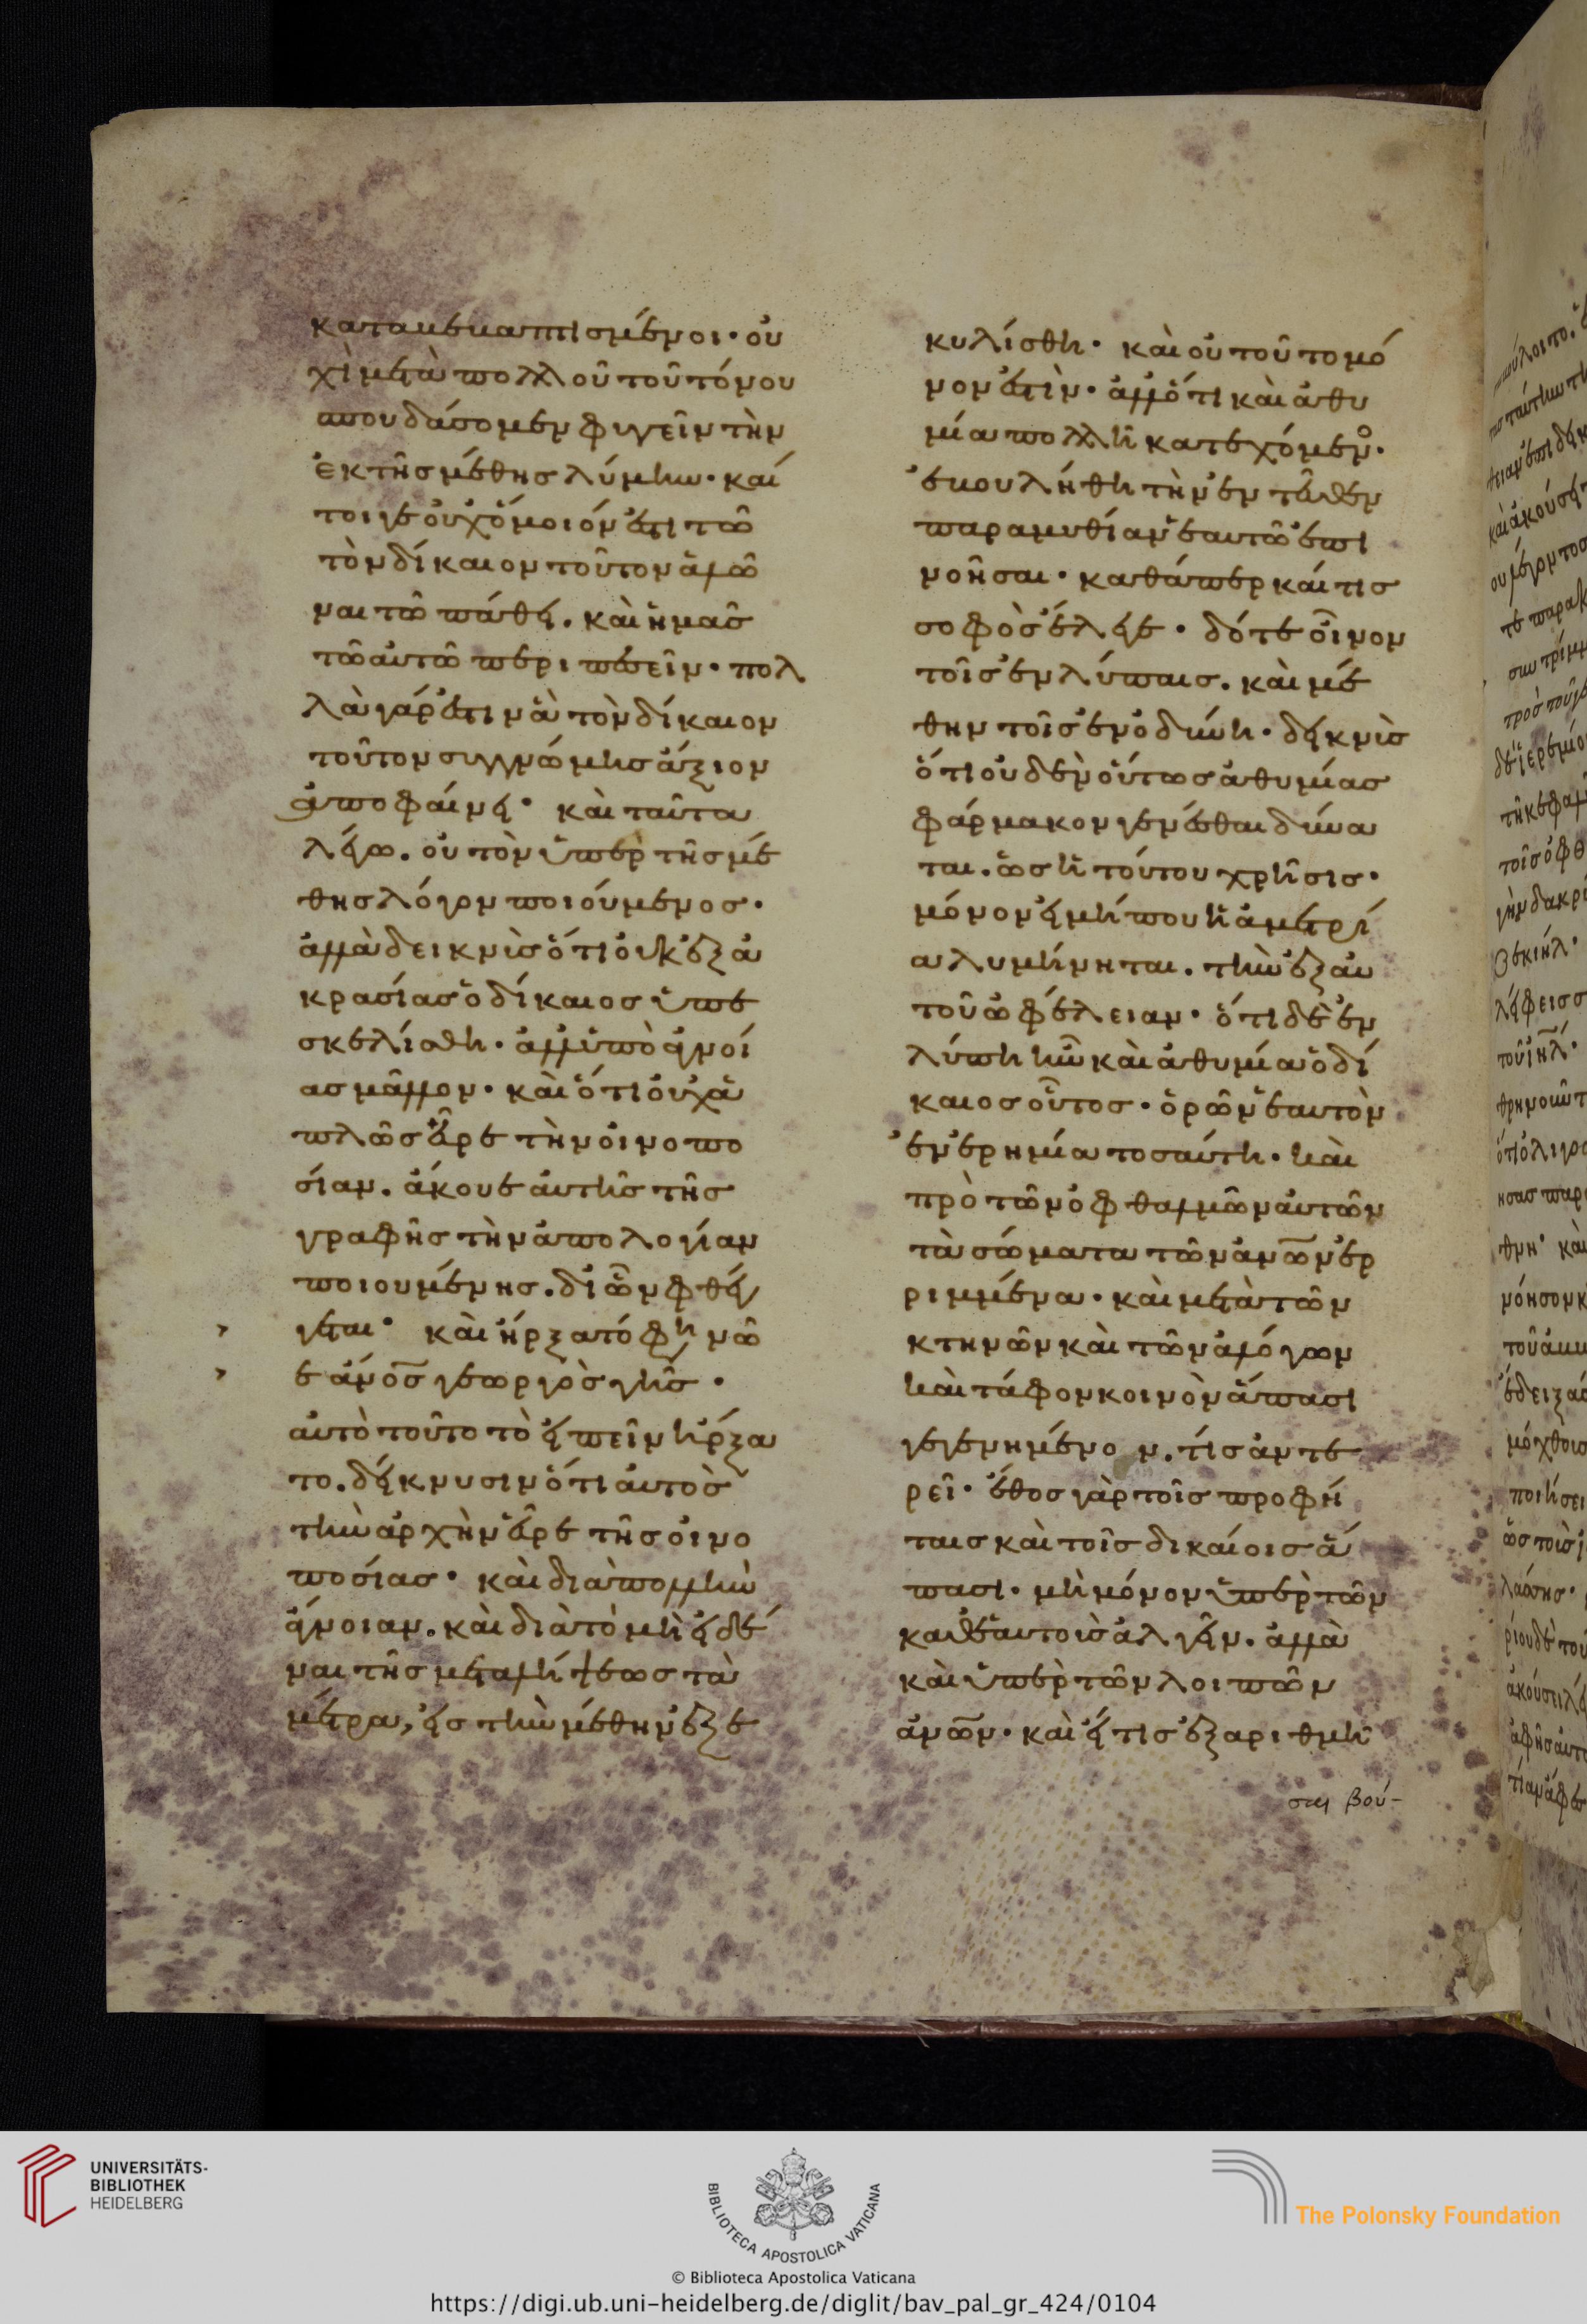 καταβεβαπτισμένοι· οὐ
χὶ μετὰ πολλοῦ τοῦ τόνου
σπουδάσομεν φυγεῖν τὴν
ἐκ τῆς μέθης λύμην· καί
τοι γε οὐχ ὅμοιόν ἐστι τῶ
τὸν δίκαιον τοῦτον ἁλῶ
ναι τῶ πάθει. καὶ ἡμᾶς
τῶ αὐτῶ περιπεσεῖν· πολ
λὰ γάρ ἐστιν ἃ τὸν δίκαιον
τοῦτον συγγνώμης ἄξιον
ἀποφαίνει· καὶ ταῦτα
λέγω. οὐ τὸν ὑπὲρ τῆς μέ
θης λόγον ποιούμενος·
ἀλλὰ δεικνὺς ὅτι οὐκ ἐξ ἀ
κρασίας ὁ δίκαιος ὑπε
σκελίσθη· ἀλλ' ὑπὸ ἀγνοί
ας μᾶλλον· καὶ ὅτι οὐχ ἁ
πλῶς εὗρε τὴν οἰνοπο
σίαν. ἄκουε αὐτῆς τῆς
γραφῆς τὴν ἀπολογίαν
ποιουμένης. δι' ὧν φθέγ
γεται· καὶ ἤρξατό φη νῶ
ε ἄνος γεωργὸς γῆς·
αὐτὸ τοῦτο τὸ εἰπεῖν ἤρξα
το. δείκνυσιν ὅτι αὐτὸς
τὴν ἀρχὴν εὗρε τῆς οἰνο
ποσίας· καὶ διὰ πολλὴν
ἄγνοιαν. καὶ διὰ τὸ μὴ εἰδέ
ναι τῆς μεταλήψεως τὰ
μέτρα, εἰς τὴν μέθην ἐξε
κυλίσθη· καὶ οὐ τοῦτο μό
νον ἐστὶν· ἀλλ' ὅτι καὶ ἀθυ
μία πολλῆ κατεχόμενο·
ἐβουλήθη τὴν ἐντεῦθεν
παραμυθίαν ἑαυτῶ ἐπι
νοῆσαι· καθάπερ καί τις
σοφὸς ἔλεγε· δότε οἶνον
τοῖς ἐν λύπαις. καὶ μέ
θην τοῖς ἐν ὀδύνη· δεικνὺς
ὅτι οὐδὲν οὕτως ἀθυμίας
φάρμακον γενέσθαι δύνα
ται. ὡς ἡ τούτου χρῆσις·
μόνον εἰ μή που ἡ ἀμετρί
α λυμήνηται. τὴν ἐξ αὐ
τοῦ ὠφέλειαν· ὅτι δὲ ἐν
λύπη ἦν καὶ ἀθυμία ὁ δί
καιος οὗτος· ὁρῶν ἑαυτὸν
ἐν ἐρημία τοσαύτη· καὶ
πρὸ τῶν ὀφθαλμῶν αὐτῶν
τὰ σώματα τῶν ἀνων ἐρ
ριμμένα· καὶ μετὰ τῶν
κτηνῶν καὶ τῶν ἀλόγων
καὶ τάφον κοινὸν ἅπασι
γεγενημένον. τίς ἀντε
ρεῖ· ἔθος γὰρ τοῖς προφή
ταις καὶ τοῖς δικαίοις ἅ
πασι· μὴ μόνον ὑπὲρ τῶν
καθ' ἑαυτοὺς ἀλγεῖν. ἀλλὰ
καὶ ὑπὲρ τῶν λοιπῶν
ἀνων· καὶ εἴ τις ἐξαριθμῆ
σαι βού-
UNIVERSITÄTS-
BIBLIOTHEK
HEIDELBERG
BIBLIOTECA APOSTOLICA VATICANA
The Polonsky Foundation
© Biblioteca Apostolica Vaticana
https://digi.ub.uni-heidelberg.de/diglit/bav_pal_gr_424/0104